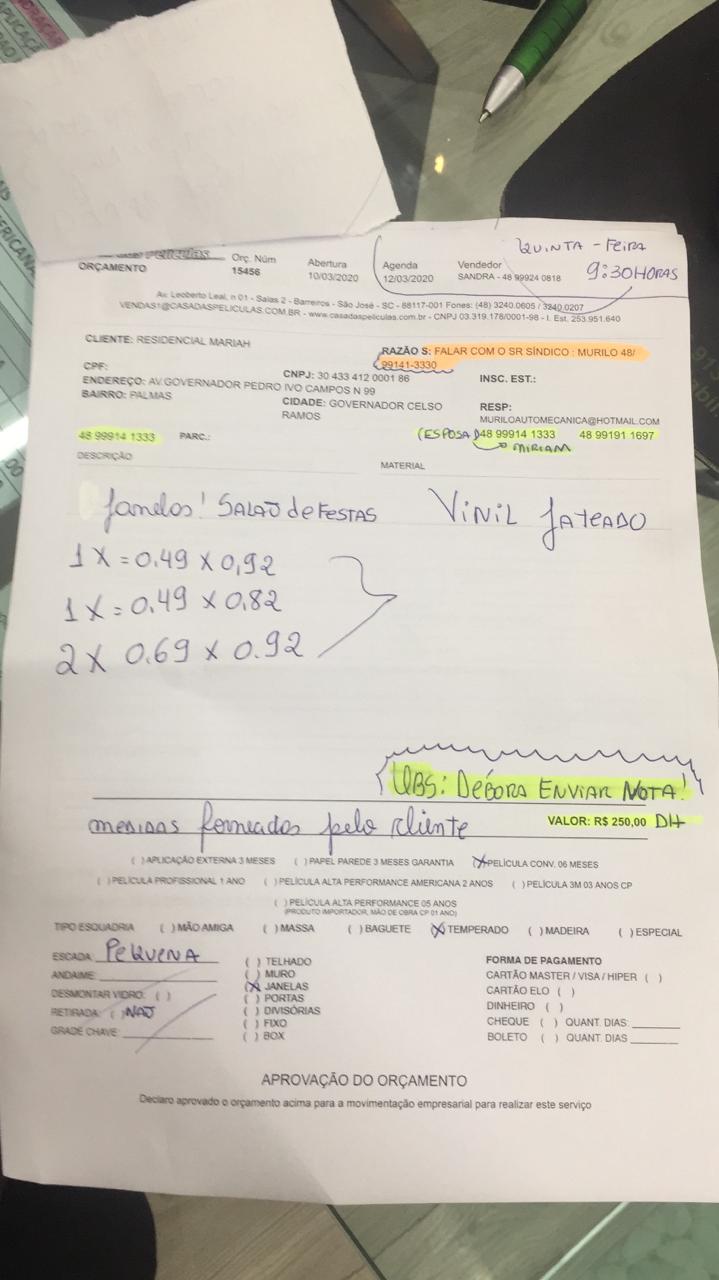 Películas
ORÇAMENTO
Orç. Núm
15456
Abertura
10/03/2020
Agenda
12/03/2020
Vendedor
SANDRA - 48 99924 0818
QUINTA - FEIRA
9:30 HORAS
Av. Leoberto Leal, n 01 - Salas 2 - Barreiros - São José - SC - 88117-001 Fones: (48) 3240.0605 / 3240.0207
VENDAS1@CASADASPELICULAS.COM.BR - www.casadaspeliculas.com.br - CNPJ 03.319.178/0001-98 - I. Est. 253.951.640
CLIENTE: RESIDENCIAL MARIAH
RAZÃO S: FALAR COM O SR SÍNDICO : MURILO 48/
99141-3330
CPF:
CNPJ: 30 433 412 0001 86
INSC. EST.:
ENDEREÇO: AV.GOVERNADOR PEDRO IVO CAMPOS N 99
BAIRRO: PALMAS
CIDADE: GOVERNADOR CELSO
RAMOS
RESP:
MURILOAUTOMECANICA@HOTMAIL.COM
48 99914 1333 PARC.:
(ESPOSA) 48 99914 1333 48 99191 1697
MIRIAM
DESCRIÇÃO
MATERIAL
Janelas! SALÃO de FESTAS
VINIL JATEADO
1 X = 0.49 X 0,92
1 X = 0.49 X 0.82
2 X 0.69 X 0.92
OBS: DÉBORA ENVIAR NOTA!
medidas fornecidas pelo cliente
VALOR: R$ 250,00 DH
( ) APLICAÇÃO EXTERNA 3 MESES ( ) PAPEL PAREDE 3 MESES GARANTIA (X) PELÍCULA CONV. 06 MESES
( ) PELÍCULA PROFISSIONAL 1 ANO ( ) PELÍCULA ALTA PERFORMANCE AMERICANA 2 ANOS ( ) PELÍCULA 3M 03 ANOS CP
( ) PELÍCULA ALTA PERFORMANCE 05 ANOS
(PRODUTO IMPORTADOR, MÃO DE OBRA CP 01 ANO)
TIPO ESQUADRIA ( ) MÃO AMIGA ( ) MASSA ( ) BAGUETE (X) TEMPERADO ( ) MADEIRA ( ) ESPECIAL
ESCADA: PEQUENA
ANDAIME:
DESMONTAR VIDRO: ( )
RETIRADA: ( ) NÃO
GRADE CHAVE:
( ) TELHADO
( ) MURO
(X) JANELAS
( ) PORTAS
( ) DIVISÓRIAS
( ) FIXO
( ) BOX
FORMA DE PAGAMENTO
CARTÃO MASTER / VISA / HIPER ( )
CARTÃO ELO ( )
DINHEIRO ( )
CHEQUE ( ) QUANT. DIAS:
BOLETO ( ) QUANT. DIAS
APROVAÇÃO DO ORÇAMENTO
Declaro aprovado o orçamento acima para a movimentação empresarial para realizar este serviço